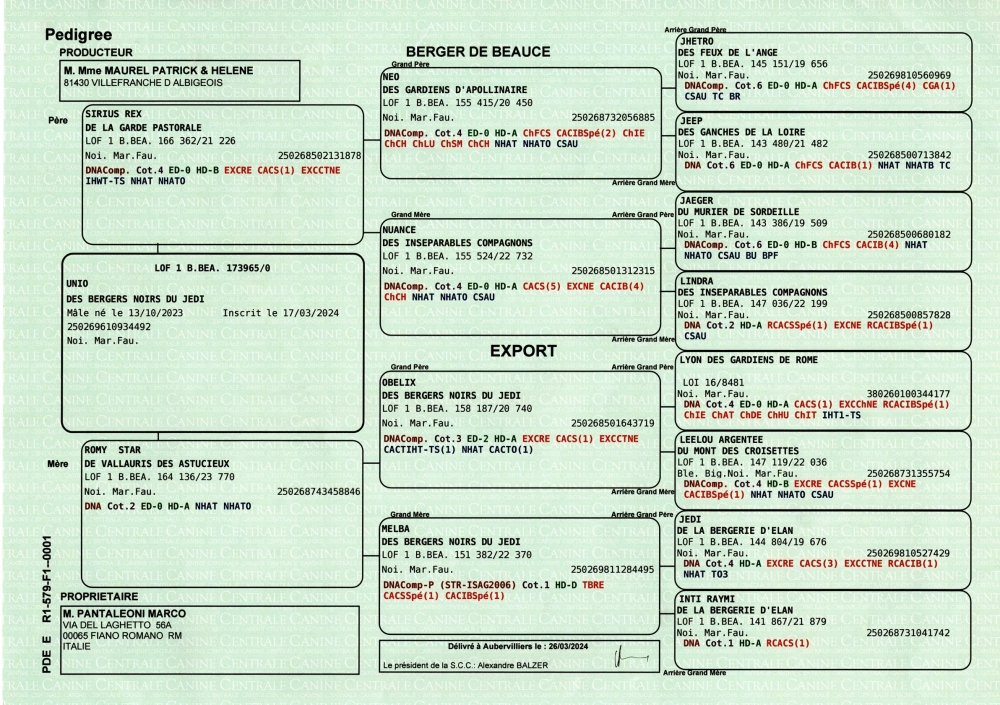 Pedigree
PRODUCTEUR
M. Mme MAUREL PATRICK & HELENE
81430 VILLEFRANCHE D ALBIGEOIS
Père
SIRIUS REX
DE LA GARDE PASTORALE
LOF 1 B.BEA. 166 362/21 226
Noi. Mar.Fau. 250268502131878
DNAComp. Cot.4 ED-0 HD-B EXCRE CACS(1) EXCCTNE
IHWT-TS NHAT NHATO
LOF 1 B.BEA. 173965/0
UNIO
DES BERGERS NOIRS DU JEDI
Mâle né le 13/10/2023 Inscrit le 17/03/2024
250269610934492
Noi. Mar.Fau.
Mère
ROMY STAR
DE VALLAURIS DES ASTUCIEUX
LOF 1 B.BEA. 164 136/23 770
Noi. Mar.Fau. 250268743458846
DNA Cot.2 ED-0 HD-A NHAT NHATO
PROPRIETAIRE
M. PANTALEONI MARCO
VIA DEL LAGHETTO 56A
00065 FIANO ROMANO RM
ITALIE
PDE E R1-579-F1--0001
BERGER DE BEAUCE
Grand Père
NEO
DES GARDIENS D'APOLLINAIRE
LOF 1 B.BEA. 155 415/20 450
Noi. Mar.Fau. 250268732056885
DNAComp. Cot.4 ED-0 HD-A ChFCS CACIBSpé(2) ChIE
ChCH ChLU ChSM ChCH NHAT NHATO CSAU
Arrière Grand Mère
Grand Mère
Arrière Grand Père
NUANCE
DES INSEPARABLES COMPAGNONS
LOF 1 B.BEA. 155 524/22 732
Noi. Mar.Fau. 250268501312315
DNAComp. Cot.4 ED-0 HD-A CACS(5) EXCNE CACIB(4)
ChCH NHAT NHATO CSAU
Arrière Grand Mère
EXPORT
Grand Père
Arrière Grand Père
OBELIX
DES BERGERS NOIRS DU JEDI
LOF 1 B.BEA. 158 187/20 740
Noi. Mar.Fau. 250268501643719
DNAComp. Cot.3 ED-2 HD-A EXCRE CACS(1) EXCCTNE
CACTIHT-TS(1) NHAT CACTO(1)
Arrière Grand Mère
Grand Mère
Arrière Grand Père
MELBA
DES BERGERS NOIRS DU JEDI
LOF 1 B.BEA. 151 382/22 370
Noi. Mar.Fau. 250269811284495
DNAComp-P (STR-ISAG2006) Cot.1 HD-D TBRE
CACSSpé(1) CACIBSpé(1)
Délivré à Aubervilliers le : 26/03/2024
Le président de la S.C.C.: Alexandre BALZER
Arrière Grand Père
JHETRO
DES FEUX DE L'ANGE
LOF 1 B.BEA. 145 151/19 656
Noi. Mar.Fau. 250269810560969
DNAComp. Cot.6 ED-0 HD-A ChFCS CACIBSpé(4) CGA(1)
CSAU TC BR
JEEP
DES GANCHES DE LA LOIRE
LOF 1 B.BEA. 143 480/21 482
Noi. Mar.Fau. 250268500713842
DNA Cot.6 ED-0 HD-A ChFCS CACIB(1) NHAT NHATB TC
JAEGER
DU MURIER DE SORDEILLE
LOF 1 B.BEA. 143 386/19 509
Noi. Mar.Fau. 250268500680182
DNAComp. Cot.6 ED-0 HD-B ChFCS CACIB(4) NHAT
NHATO CSAU BU BPF
LINDRA
DES INSEPARABLES COMPAGNONS
LOF 1 B.BEA. 147 036/22 199
Noi. Mar.Fau. 250268500857828
DNA Cot.2 HD-A RCACSSpé(1) EXCNE RCACIBSpé(1)
CSAU
LYON DES GARDIENS DE ROME
LOI 16/8481
Noi. Mar.Fau. 380260100344177
DNA Cot.4 ED-0 HD-A CACS(1) EXCChNE RCACIBSpé(1)
ChIE ChAT ChDE ChHU ChIT IHT1-TS
LEELOU ARGENTEE
DU MONT DES CROISETTES
LOF 1 B.BEA. 147 119/22 036
Ble. Big.Noi. Mar.Fau. 250268731355754
DNAComp. Cot.4 HD-B EXCRE CACSSpé(1) EXCNE
CACIBSpé(1) NHAT NHATO CSAU
JEDI
DE LA BERGERIE D'ELAN
LOF 1 B.BEA. 144 804/19 676
Noi. Mar.Fau. 250269810527429
DNA Cot.4 HD-A EXCRE CACS(3) EXCCTNE RCACIB(1)
NHAT TO3
INTI RAYMI
DE LA BERGERIE D'ELAN
LOF 1 B.BEA. 141 867/21 879
Noi. Mar.Fau. 250268731041742
DNA Cot.1 HD-A RCACS(1)
Arrière Grand Mère